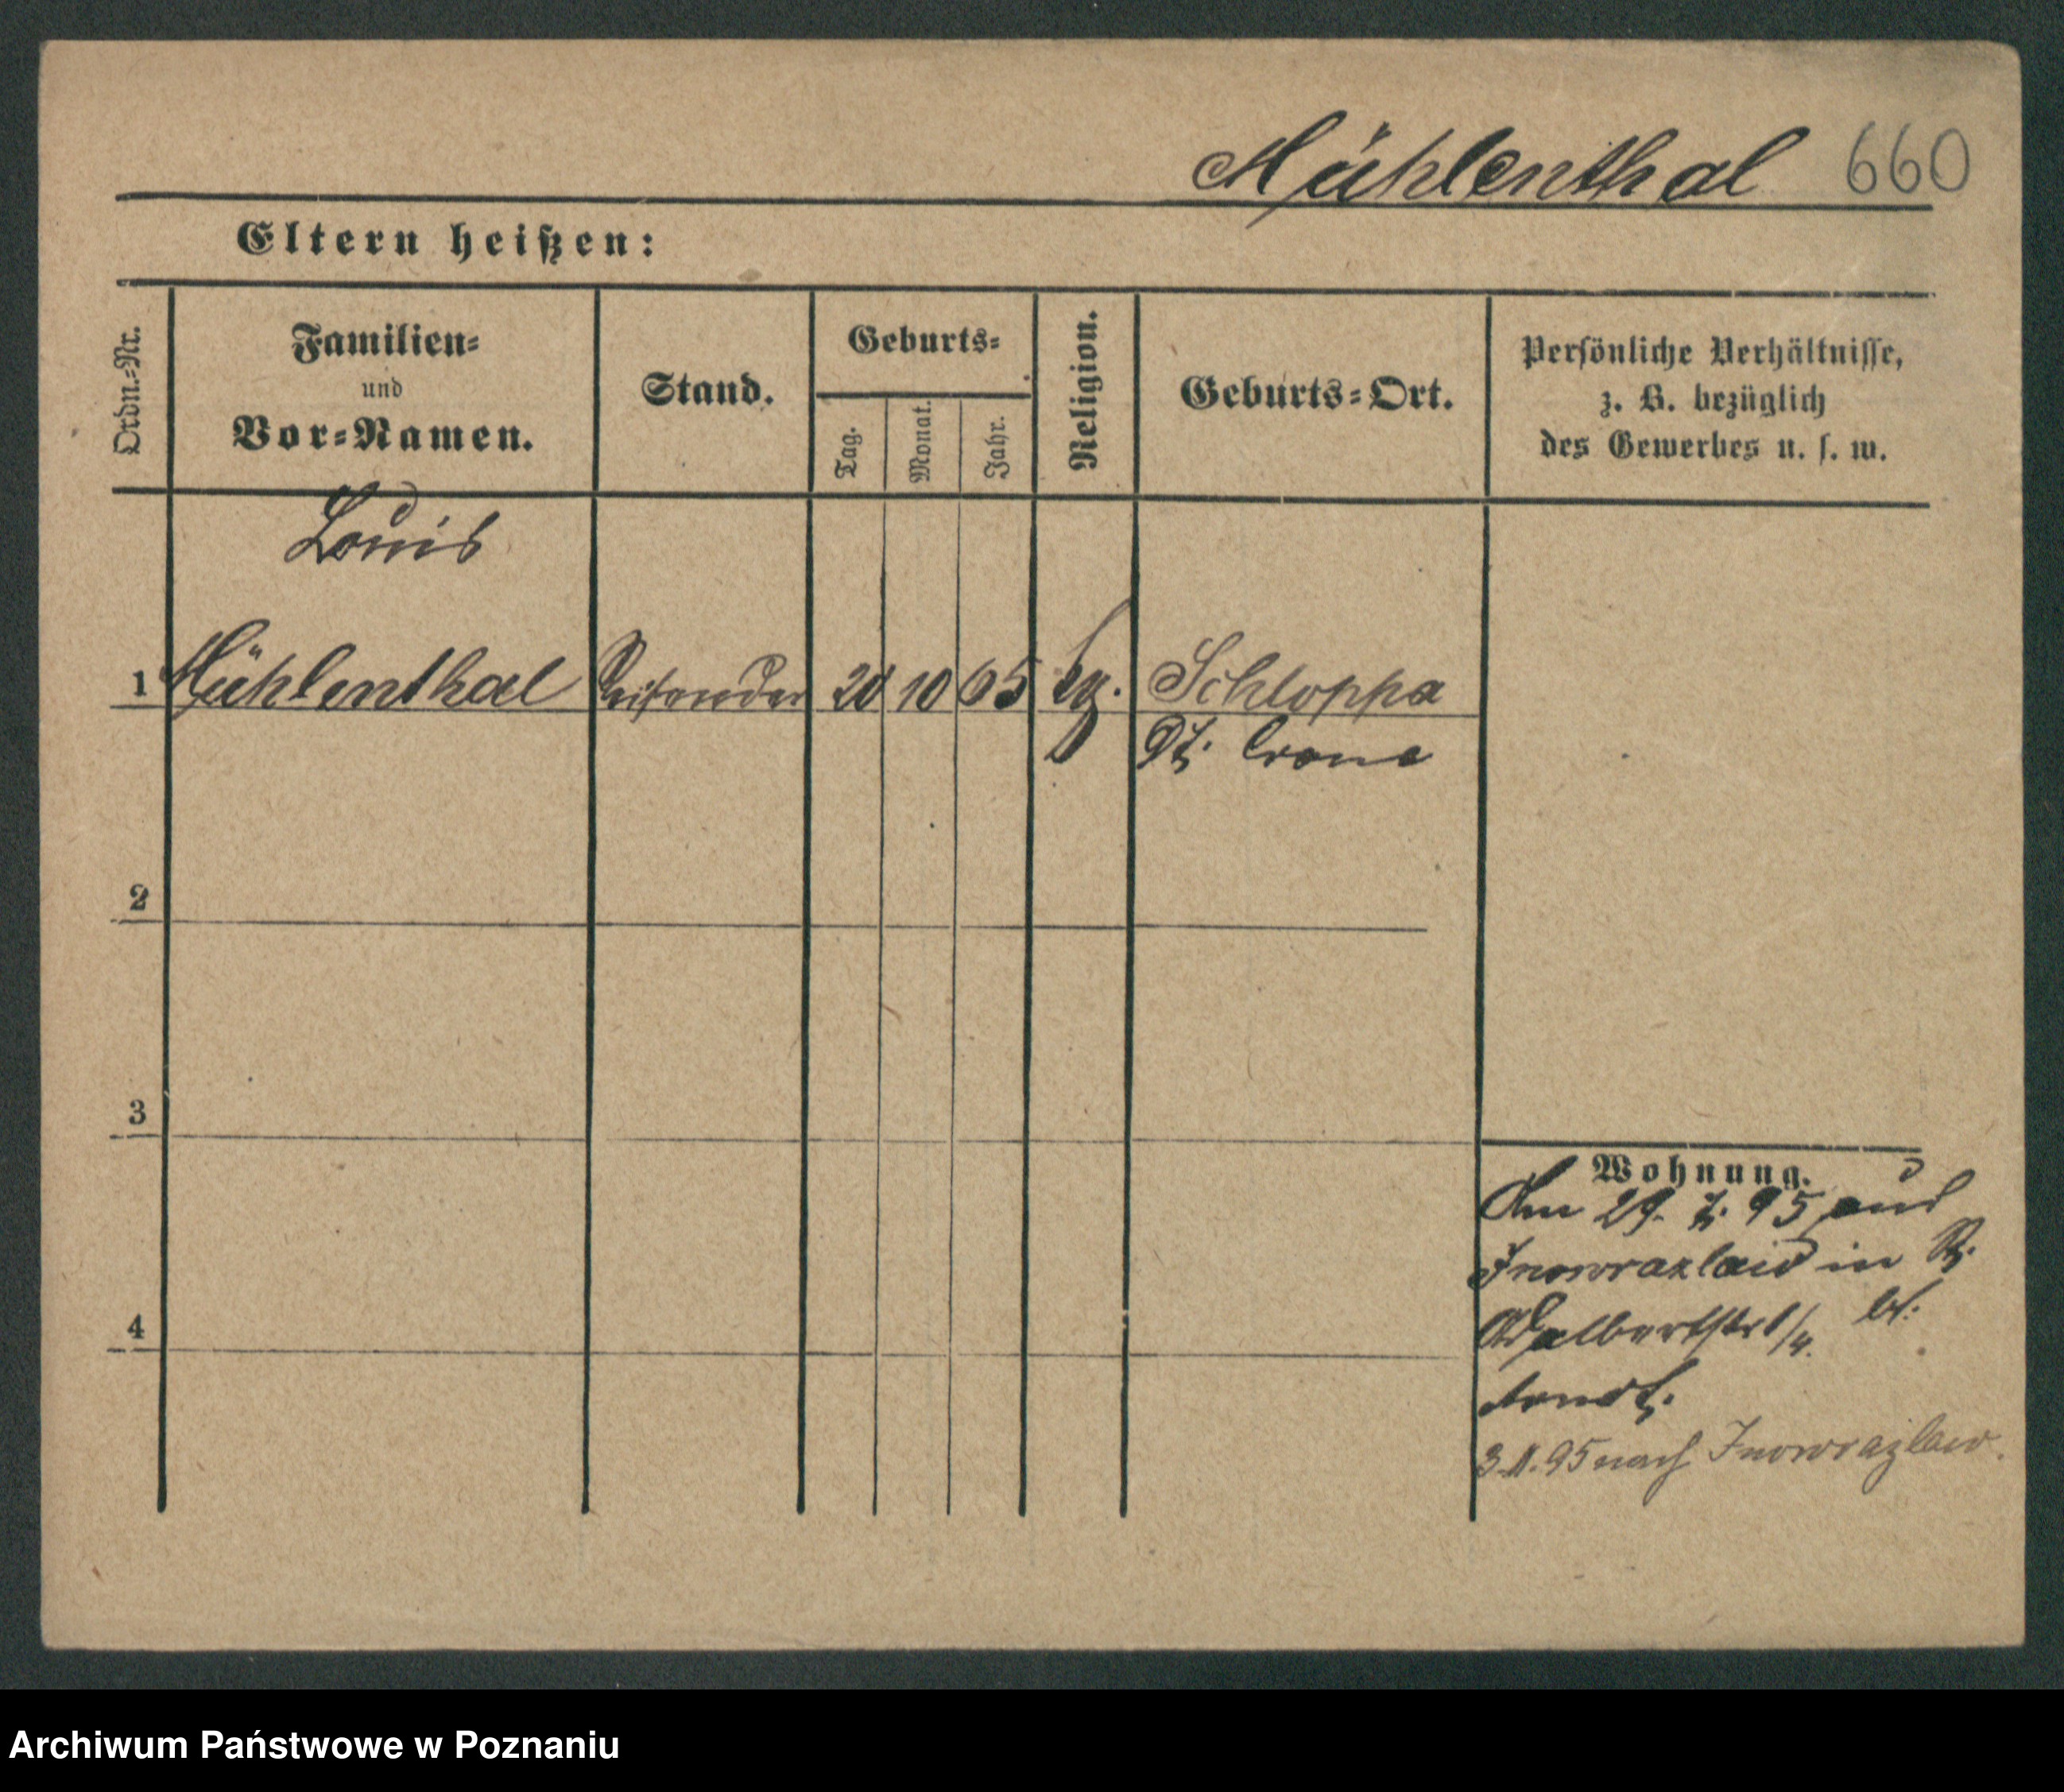 Mühlenthal 660
Eltern heißen:
Ordn.=Nr.
Familien=
und
Vor=Namen.
Stand.
Geburts=
Tag.
Monat.
Jahr.
Religion.
Geburts=Ort.
Persönliche Verhältnisse,
z. B. bezüglich
des Gewerbes u. s. w.
Louis
1 Mühlenthal Reisender 20 10 65 Schloppa
Dt. Crone
2
3
4
Wohnung.
Am 29. 7. 95 aus
Inowrazlaw in
Adalbertstr 1/4. bei
Arndt.
3.11.95 nach Inowrazlaw.
Archiwum Państwowe w Poznaniu